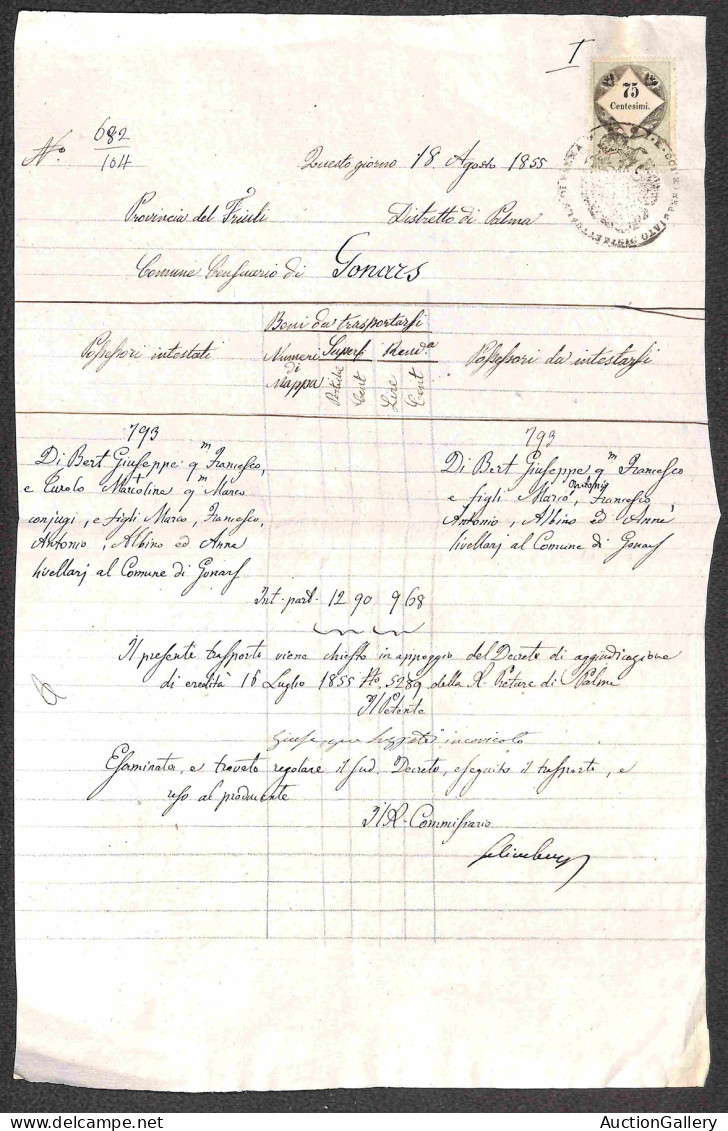 I
75
Centesimi.
No. 682
104
Questo giorno 18. Agosto 1855
Provincia del Friuli
Distretto di Palma
Comune Censuario di Gonars
Possessori intestati
Beni da trasportarsi
Numeri di Mappa
Superf.
Rend.a
Pertiche
Cent
Lire
Cent
Possessori da intestarsi
793
Di Bert Giuseppe qm Francesco,
e Marcolina qm Marco
conjugi, e figli Marco, Francesco,
Antonio, Albino ed Anna
livellarj al Comune di Gonars
793
Di Bert Giuseppe qm Francesco
e figli Marco, Francesco
Antonio, Albino ed Anna
livellarj al Comune di Gonars
Int. part. 12 90 9 68
Il presente trasporto viene chiesto in appoggio del Decreto di aggiudicazione
di eredità 16 Luglio 1855 No. 5289 della R. Preture di Palma
Il Petente
Esaminato, e trovato regolare il sud. Decreto, eseguito il trasporto, e
reso al producente
Il R. Commissario
AuctionGallery